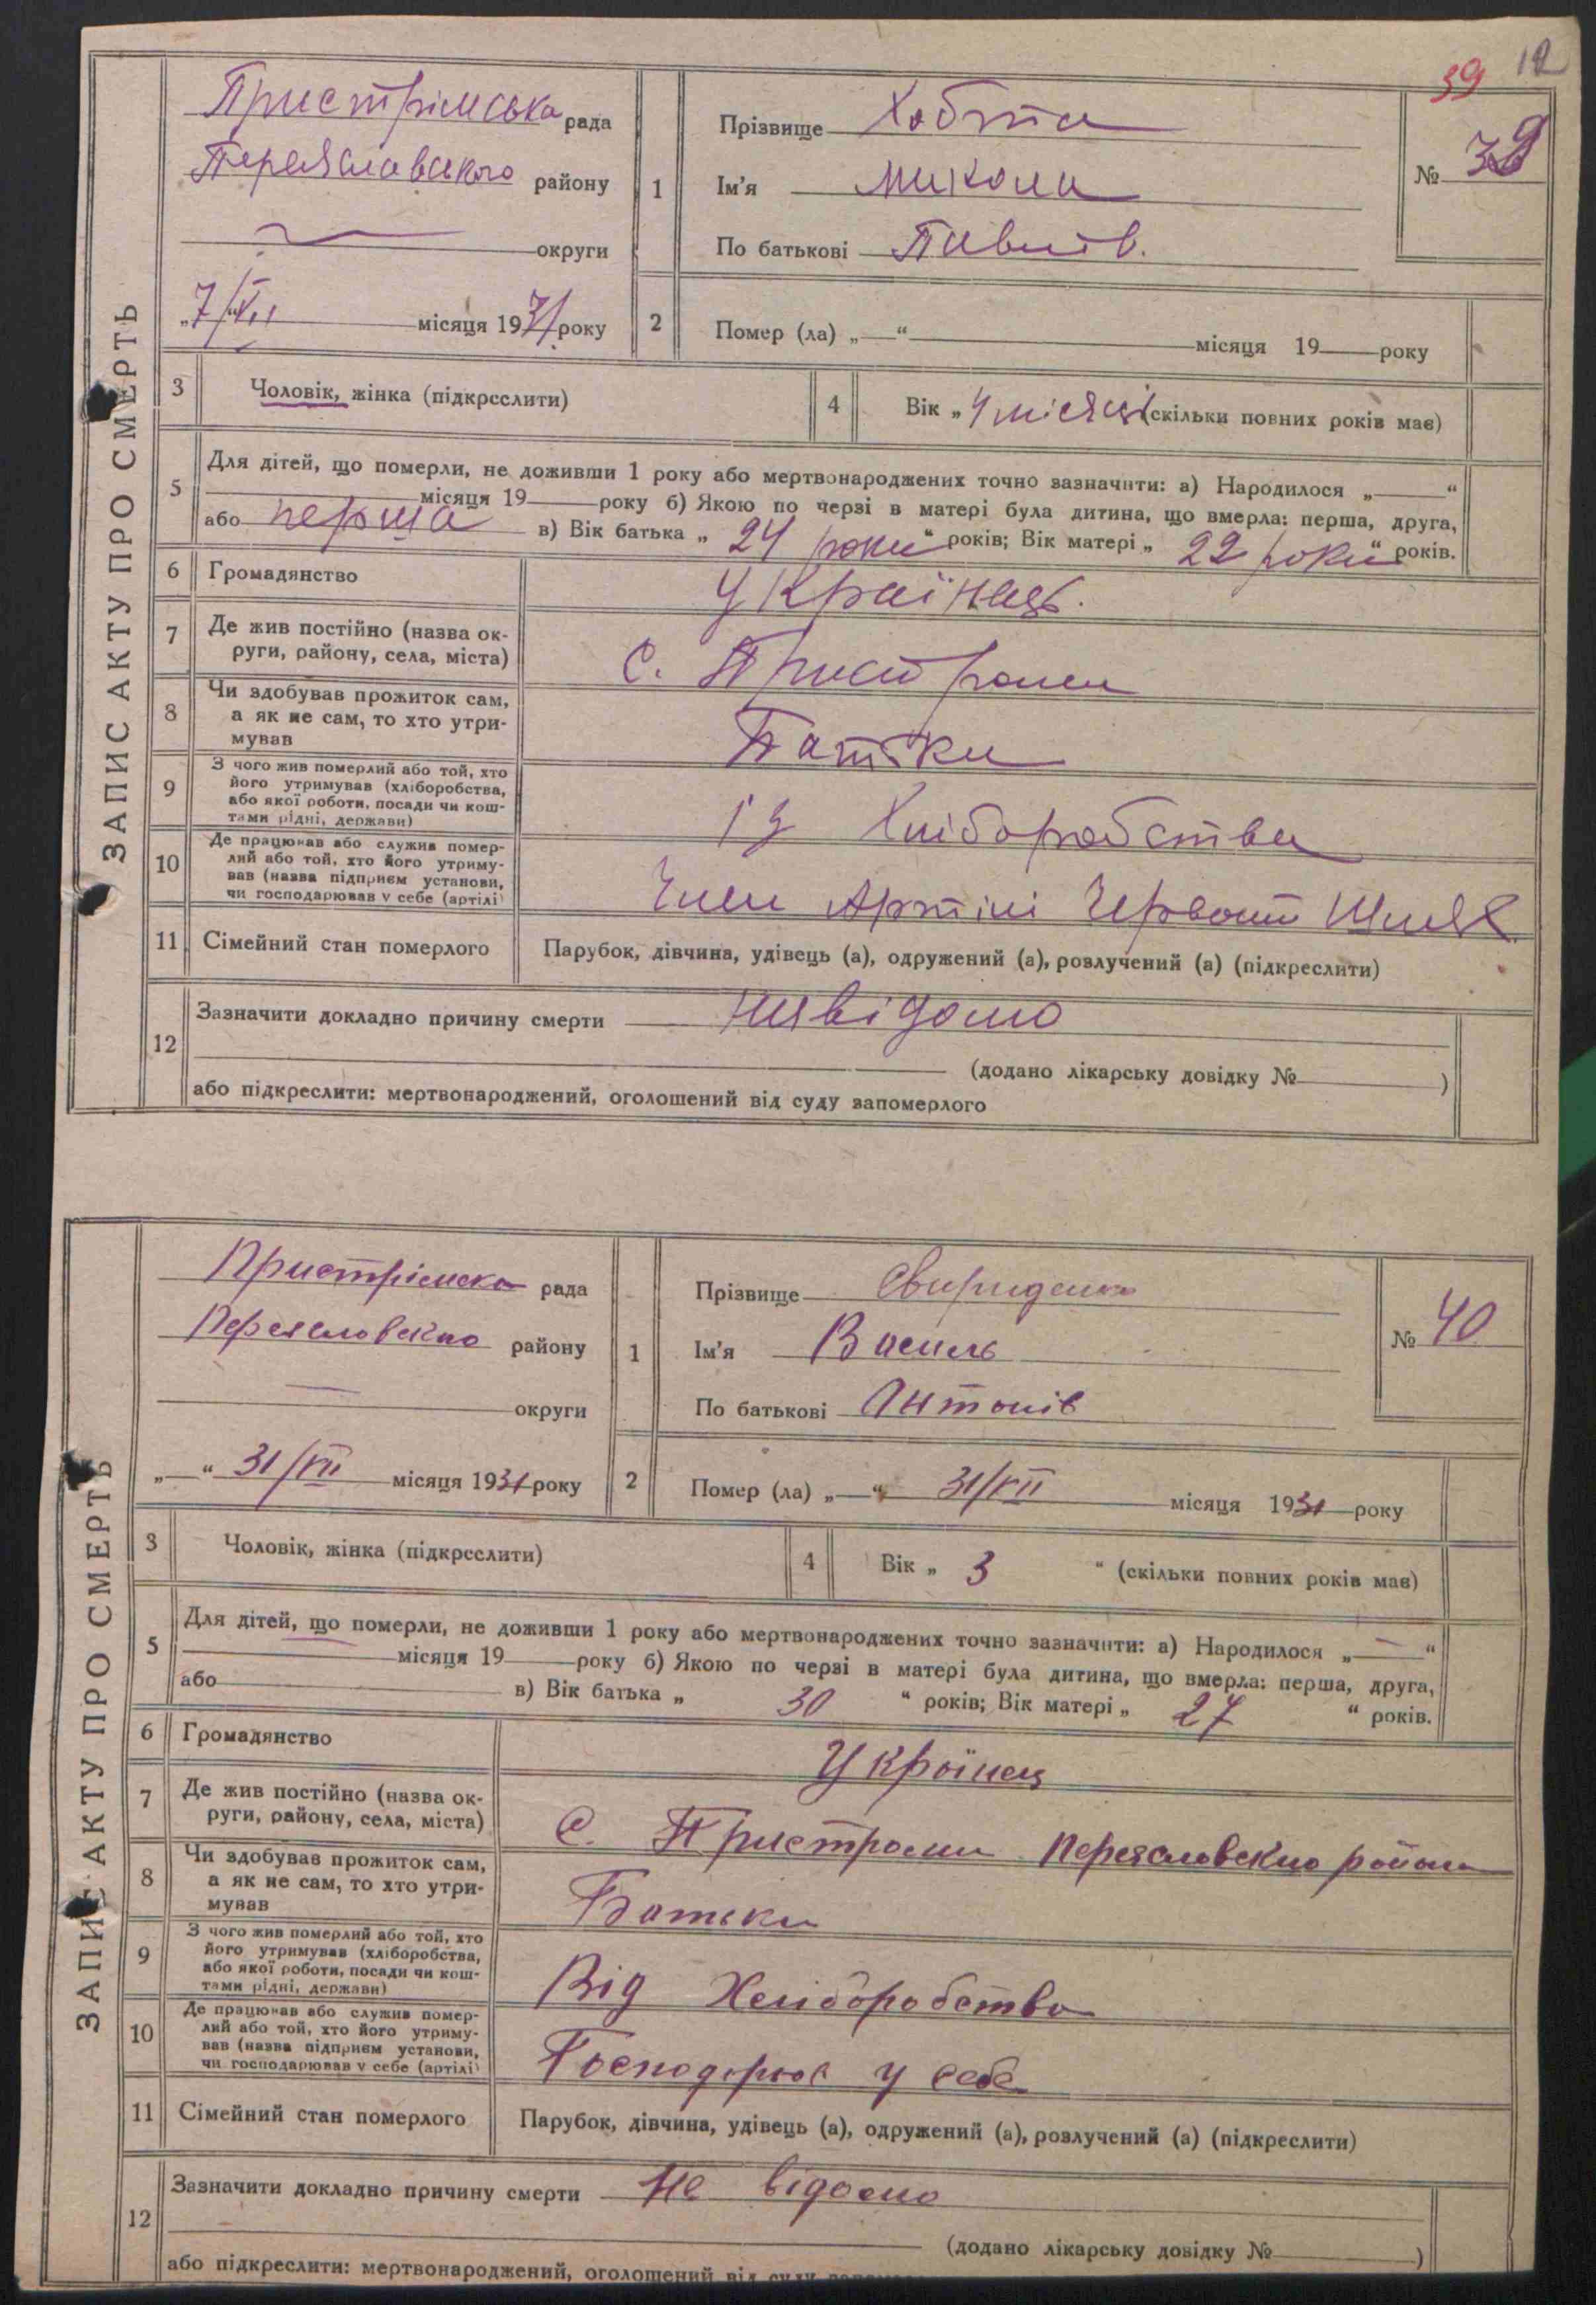 39 12
ЗАПИС АКТУ ПРО СМЕРТЬ
Пристрімська рада
Переяславського району
округи
„7/VII місяця 1931 року
1
Прізвище Хобта
Ім'я Микола
По батькові Павлів.
№ 39
2 Помер (ла) „—“ місяця 19 року
3 Чоловік, жінка (підкреслити)
4 Вік „ 4 місяці (скільки повних років має)
5 Для дітей, що померли, не доживши 1 року або мертвонароджених точно зазначити: а) Народилося „ “
місяця 19 року б) Якою по черзі в матері була дитина, що вмерла: перша, друга,
або перша в) Вік батька „ 24 роки “ років; Вік матері „ 22 роки “ років.
6 Громадянство Українець.
7 Де жив постійно (назва ок-
руги, району, села, міста) С. Пристроми
8 Чи здобував прожиток сам,
а як не сам, то хто утри-
мував Батьки
9 З чого жив померлий або той, хто
його утримував (хліборобства,
або якої роботи, посади чи кош-
тами рідні, держави) із Хліборобства
10 Де працював або служив помер-
лий або той, хто його утриму-
вав (назва підприєм установи,
чи господарював у себе (артілі) Член Артілі Червоний Шлях
11 Сімейний стан померлого Парубок, дівчина, удівець (а), одружений (а), розлучений (а) (підкреслити)
12 Зазначити докладно причину смерти нивідомо
(додано лікарську довідку № )
або підкреслити: мертвонароджений, оголошений від суду запомерлого
ЗАПИС АКТУ ПРО СМЕРТЬ
Пристрімска рада
Переяславскго району
округи
„—“ 31/VII місяця 1931 року
1
Прізвище Свириденко
Ім'я Василь
По батькові Антонів
№ 40
2 Помер (ла) „—“ 31/VII місяця 1931 року
3 Чоловік, жінка (підкреслити)
4 Вік „ 3 “ (скільки повних років має)
5 Для дітей, що померли, не доживши 1 року або мертвонароджених точно зазначити: а) Народилося „ “
місяця 19 року б) Якою по черзі в матері була дитина, що вмерла: перша, друга,
або в) Вік батька „ 30 “ років; Вік матері „ 27 “ років.
6 Громадянство Українец
7 Де жив постійно (назва ок-
руги, району, села, міста) С. Пристроми Переясловскго району
8 Чи здобував прожиток сам,
а як не сам, то хто утри-
мував Батьки
9 З чого жив померлий або той, хто
його утримував (хліборобства,
або якої роботи, посади чи кош-
тами рідні, держави) Від Хліборобства
10 Де працював або служив помер-
лий або той, хто його утриму-
вав (назва підприєм установи,
чи господарював у себе (артілі) Господарює у себе
11 Сімейний стан померлого Парубок, дівчина, удівець (а), одружений (а), розлучений (а) (підкреслити)
12 Зазначити докладно причину смерти Не відомо
(додано лікарську довідку № )
або підкреслити: мертвонароджений, оголошений від суду